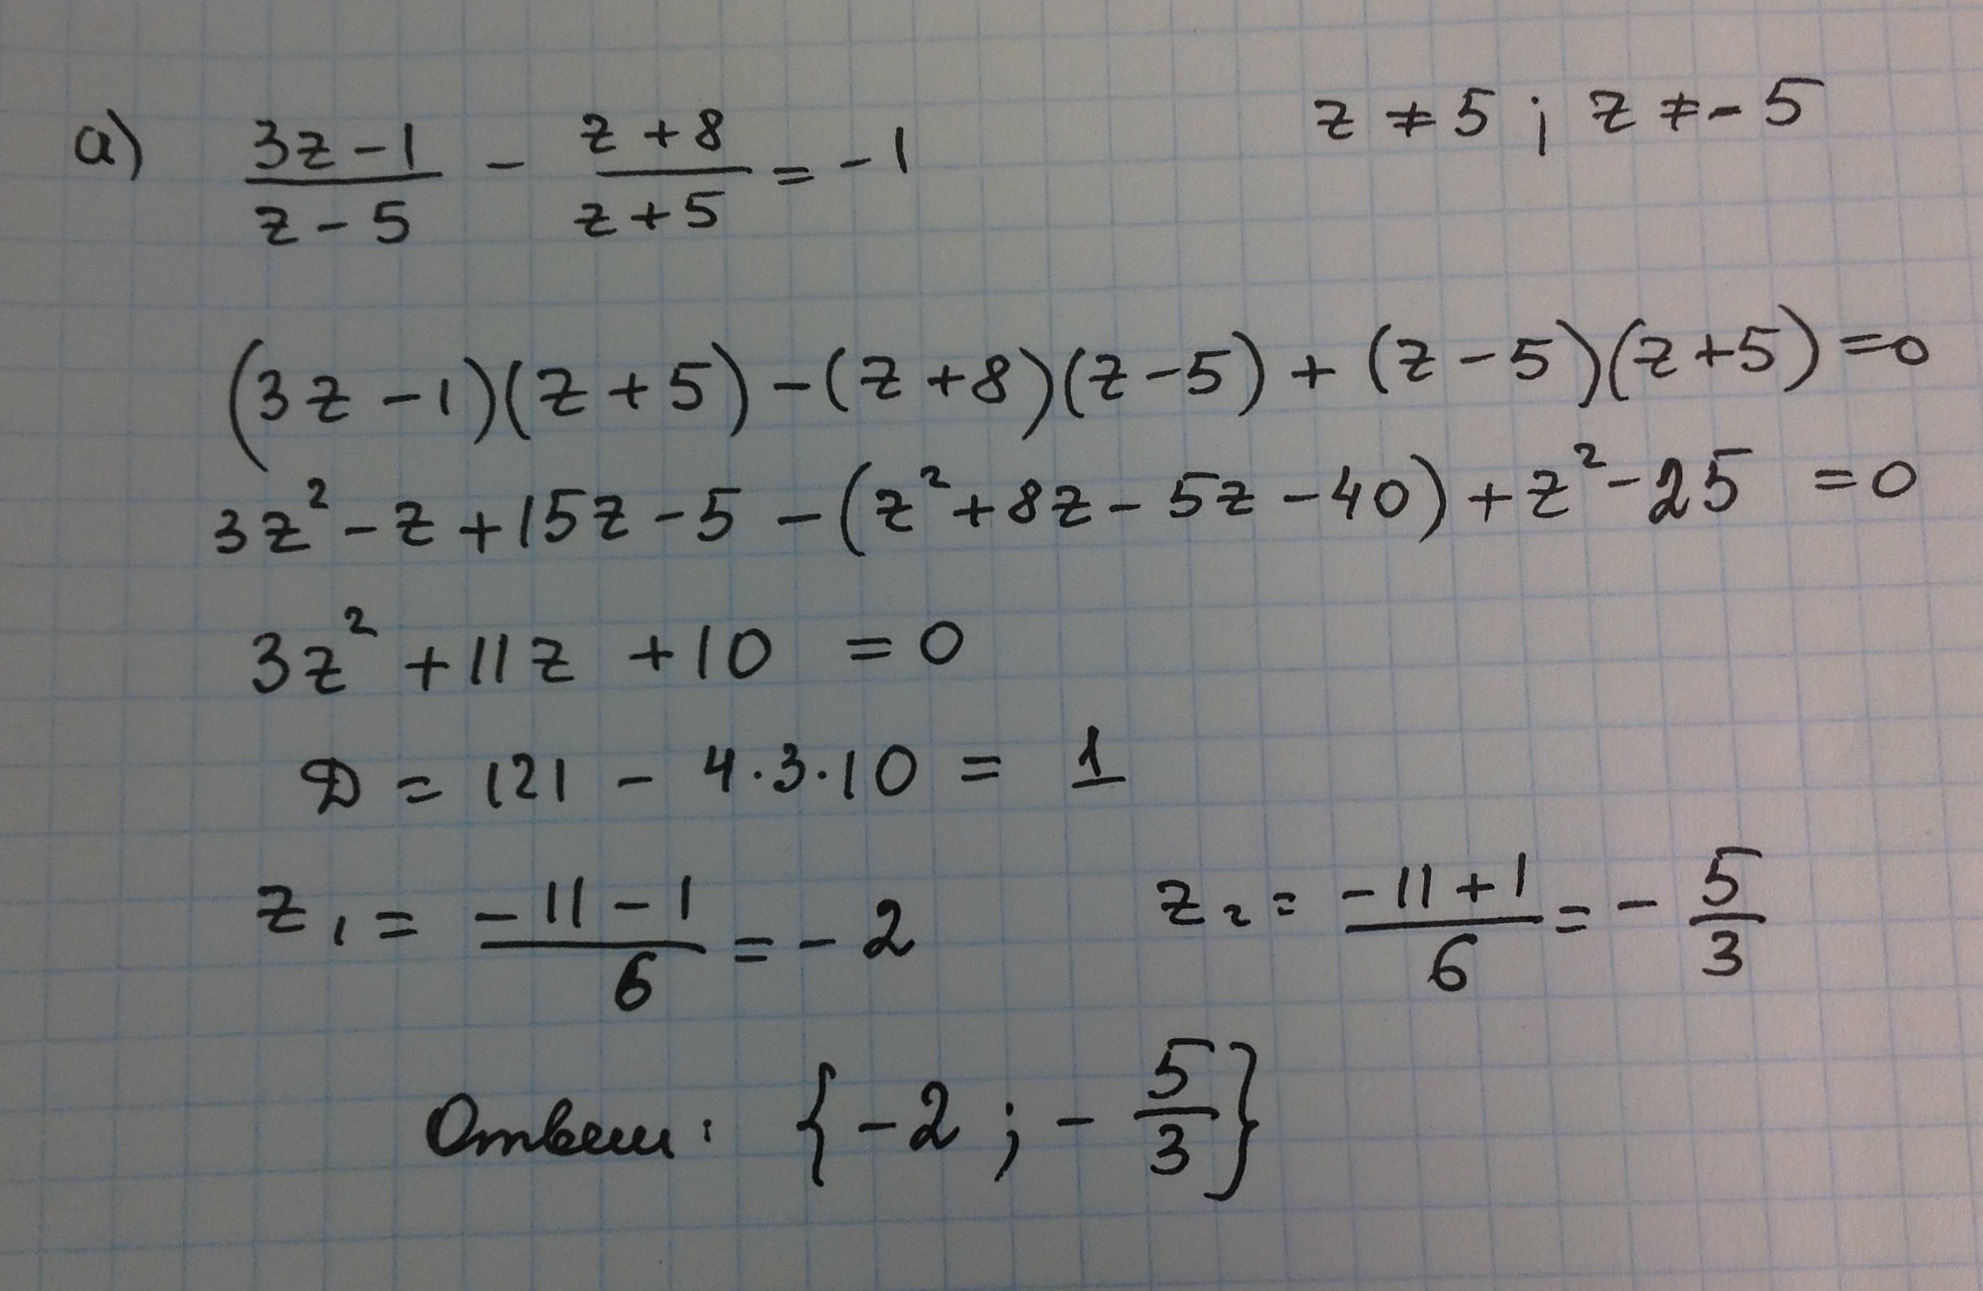 а) (3z-1)/(z-5) - (z+8)/(z+5) = -1    z ≠ 5 ; z ≠ -5
(3z-1)(z+5) - (z+8)(z-5) + (z-5)(z+5) = 0
3z² - z + 15z - 5 - (z² + 8z - 5z - 40) + z² - 25 = 0
3z² + 11z + 10 = 0
D = 121 - 4·3·10 = 1
z₁ = (-11-1)/6 = -2    z₂ = (-11+1)/6 = -5/3
Ответ: {-2 ; -5/3}